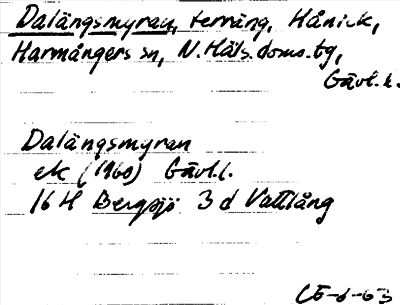 Dalängsmyran, terräng, Hånick,
Harmångers sn, N. Häls. doms. tg,
Gävl. l.
Dalängsmyran
ek (1960) Gävl. l.
16 H Bergsjö 3 d Vattlång
CÖ-6-63